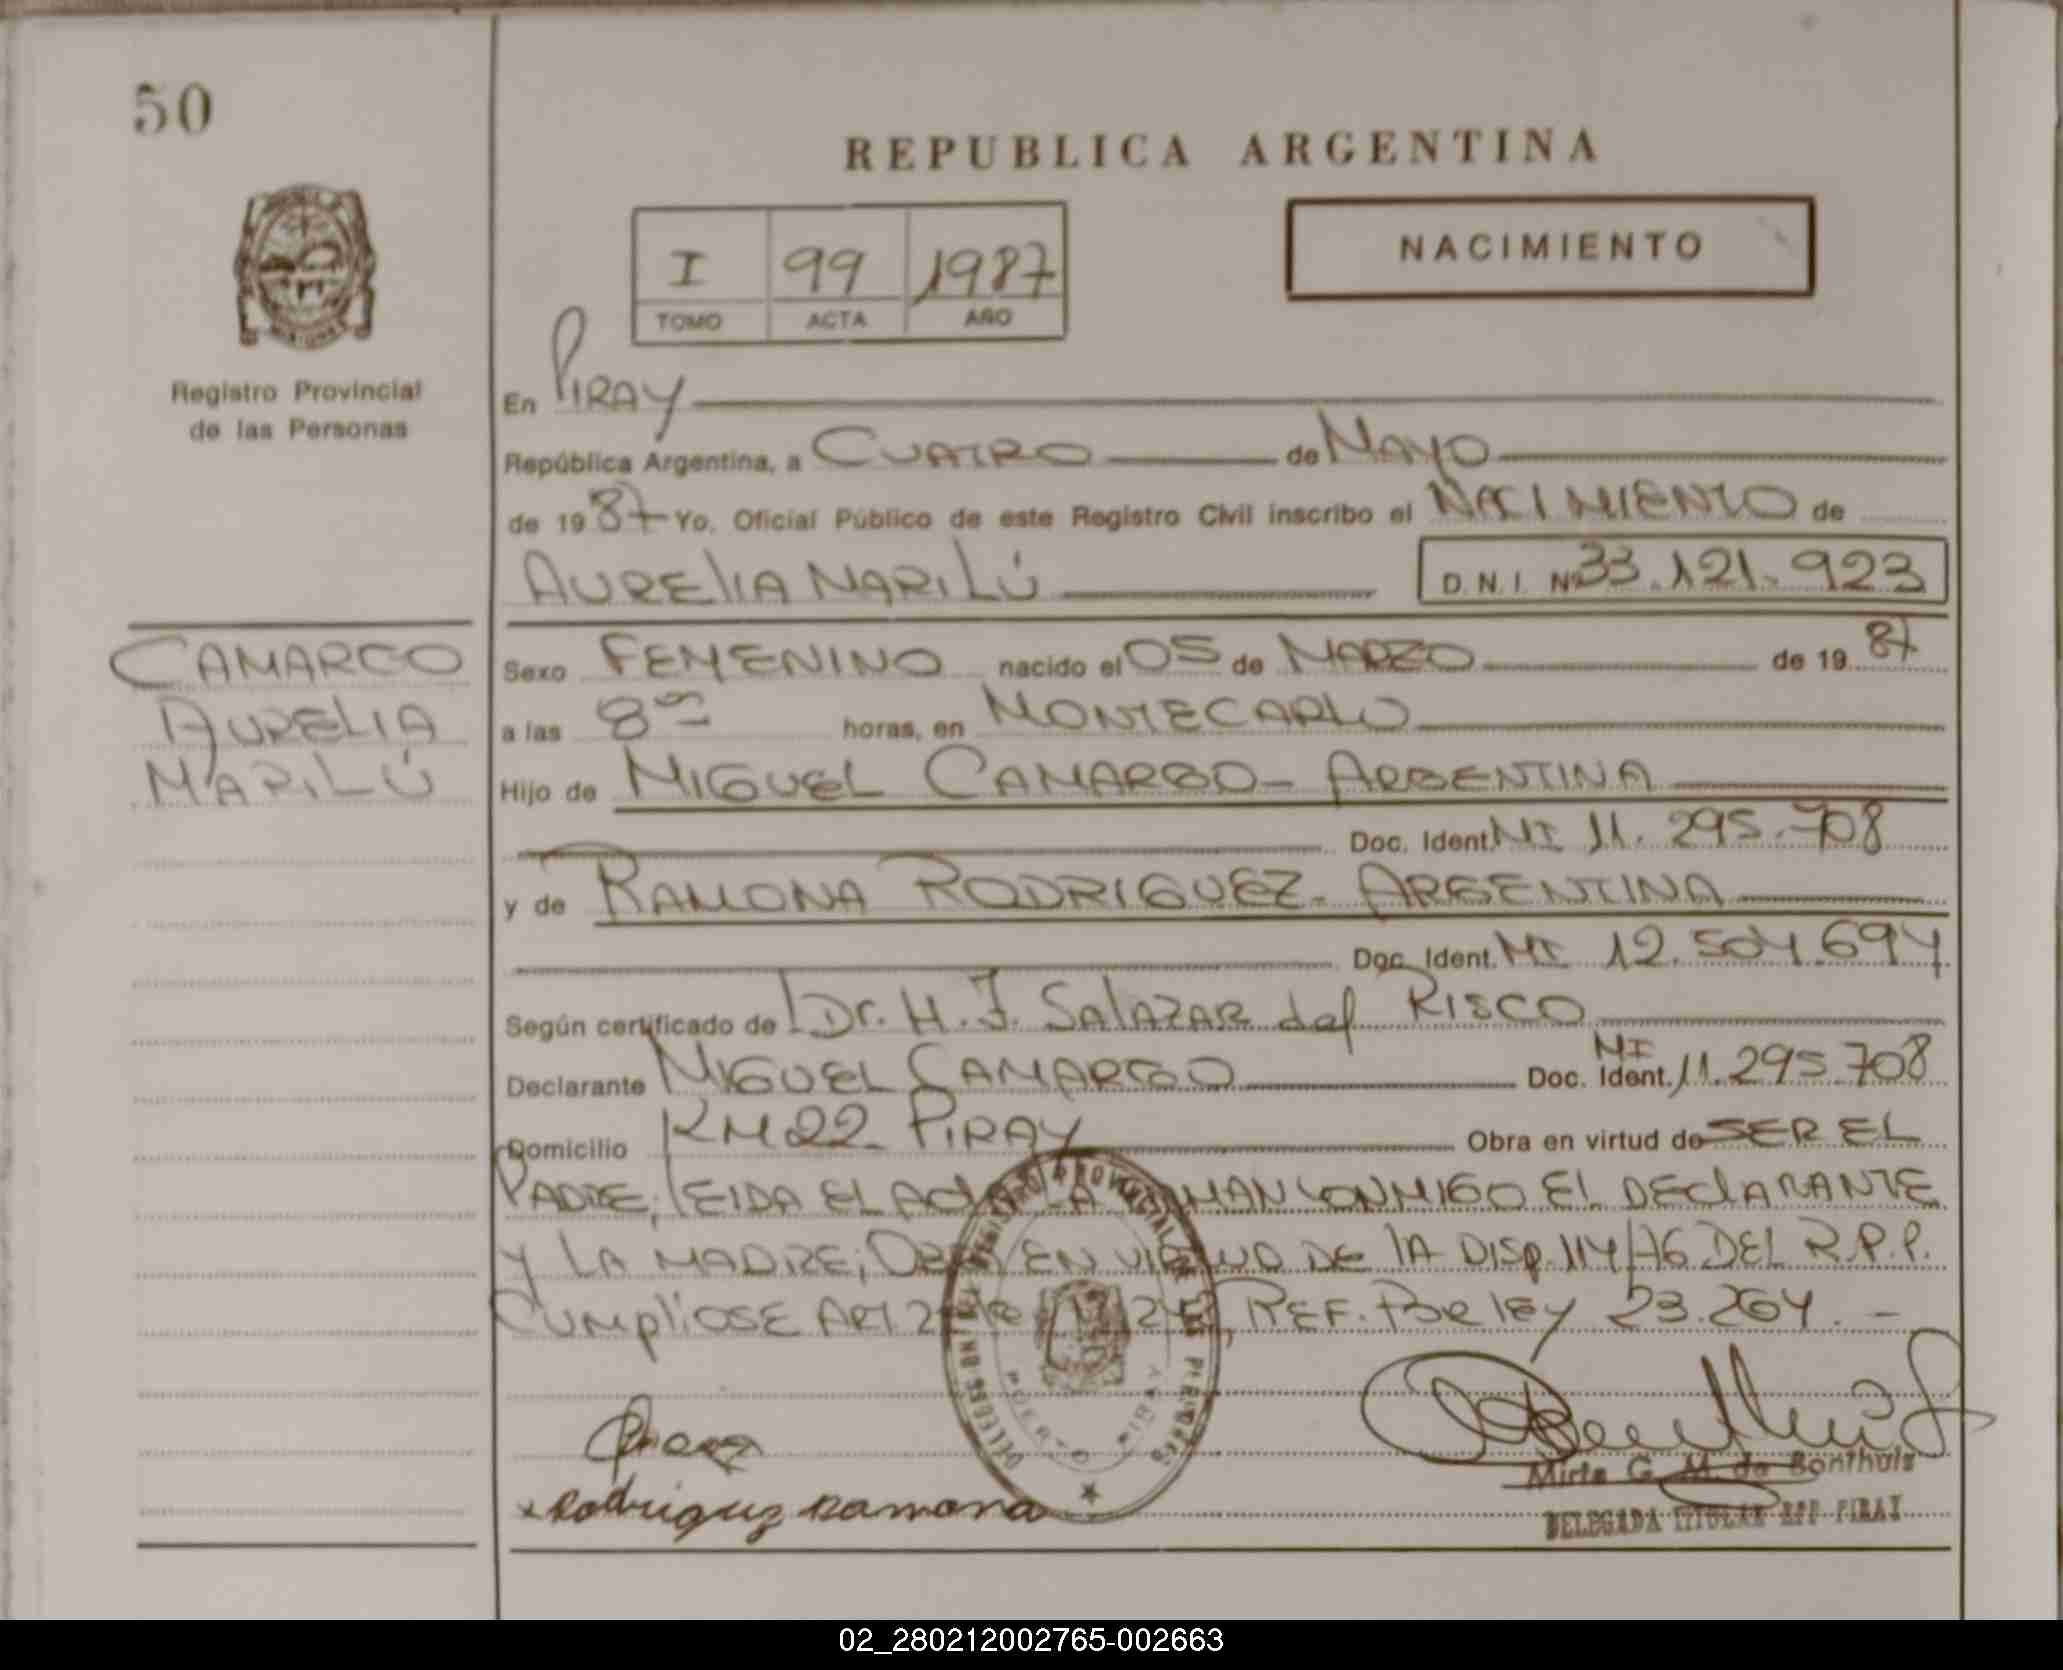 50
REPUBLICA ARGENTINA
NACIMIENTO
I 99 1987
TOMO ACTA AÑO
Registro Provincial
de las Personas
En PIRAY
República Argentina, a CUATRO de MAYO
de 1987 Yo, Oficial Público de este Registro Civil inscribo el NACIMIENTO de
AURELIA MARILÚ D.N.I. Nº 33.121.923
CAMARGO
AURELIA
MARILÚ
Sexo FEMENINO nacido el 05 de MARZO de 1987
a las 8 horas, en MONTECARLO
Hijo de MIGUEL CAMARGO - ARGENTINA
Doc. Ident. MI 11.295.708
y de RAMONA RODRIGUEZ - ARGENTINA
Doc. Ident. MI 12.504.694
Según certificado de Dr. H. J. SALAZAR del RISCO
Declarante MIGUEL CAMARGO Doc. Ident. MI 11.295.708
Domicilio KM 22 PIRAY Obra en virtud de SER EL
PADRE; LEIDA EL ACTA LA FIRMAN CONMIGO EL DECLARANTE
Y LA MADRE; OBRA EN VIRTUD DE LA DISP. 114/76 DEL R.P.P.
CUMPLIOSE ART 2 REF. POR LEY 23.264. -
REGISTRO PROVINCIAL DE
PUERTO PIRAY
x Rodriguez Ramona
Mirta G. M. de Bonthuis
DELEGADA TITULAR RPP PIRAY
02_280212002765-002663